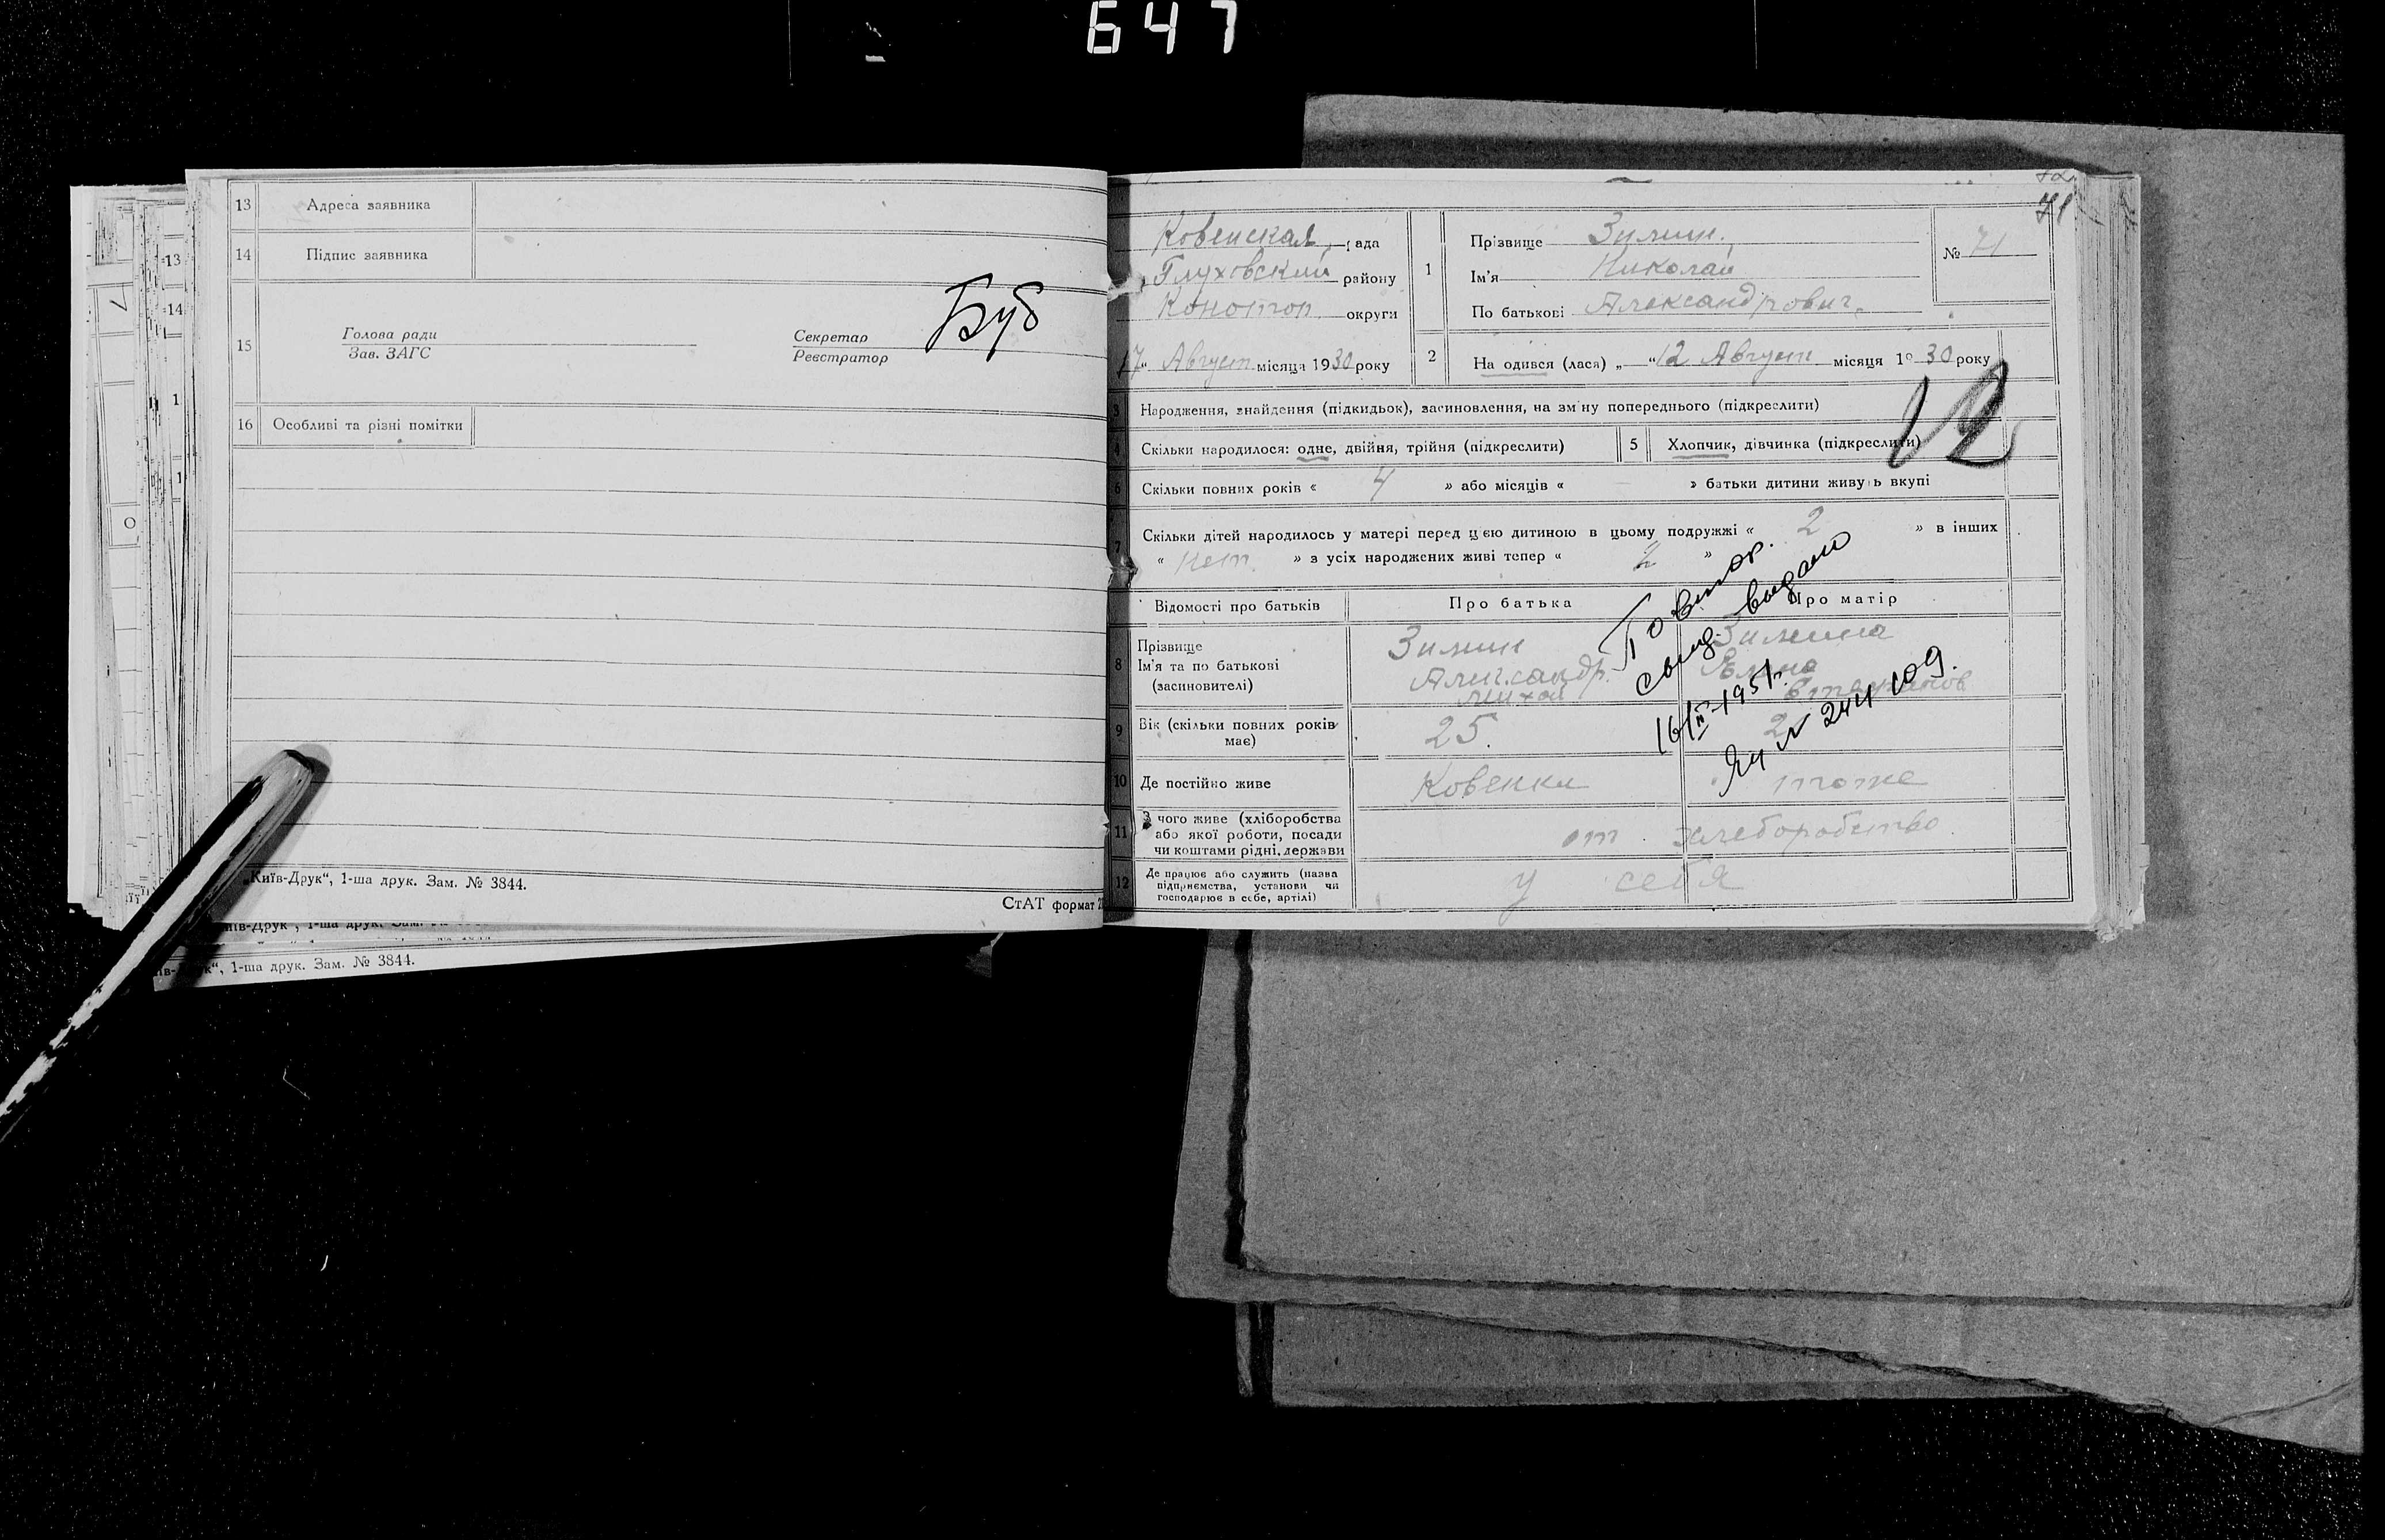 647
13 Адреса заявника
14 Підпис заявника
15 Голова ради
Зав. ЗАГС
Секретар
Реєстратор
Буб
16 Особливі та різні помітки
„Київ-Друк“, 1-ша друк. Зам. № 3844.
СтАТ формат
1-ша друк. Зам.
1-ша друк. Зам. № 3844.
71
Ковенская рада
Глуховский району
Конотоп. округи
17 “ Август місяця 1930 року
1 Прізвище Зимин
Ім'я Николай
По батькові Александрович
№ 71
2 На одився (лася) „ “ 12 Август місяця 19 30 року
3 Народження, знайдення (підкидьок), засиновлення, на зміну попереднього (підкреслити)
12
4 Скільки народилося: одне, двійня, трійня (підкреслити)
5 Хлопчик, дівчинка (підкреслити)
6 Скільки повних років « 4 » або місяців « » батьки дитини живуть вкупі
7 Скільки дітей народилось у матері перед цією дитиною в цьому подружжі « 2 » в інших
« нет. » з усіх народжених живі тепер « 2 »
Відомості про батьків Про батька Про матір
8 Прізвище
Ім'я та по батькові
(засиновителі)
Зимин
Александр.
Михай
Зимина
Повтор.
свид. выдано
16/IV-1951г.
№ 244109.
9 Вік (скільки повних років
має)
25.
10 Де постійно живе Ковенки тоже
11 З чого живе (хліборобства
або якої роботи, посади
чи коштами рідні, держави
от хлеборобство
12 Де працює або служить (назва
підприємства, установи чи
господарює в себе, артілі)
у себя